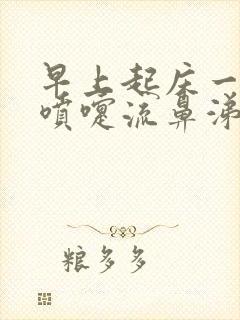 早上起床一
喷嚏流鼻涕
粮多多